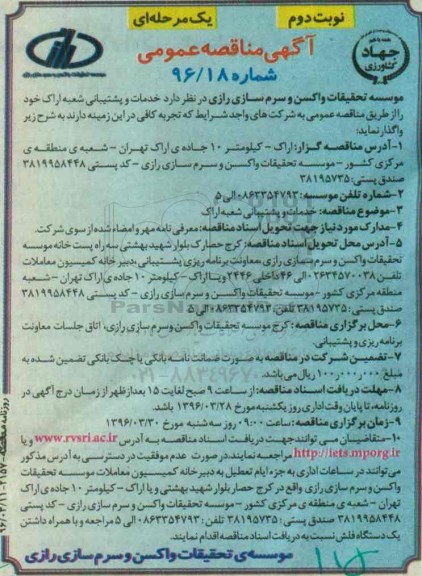 نوبت دوم
یک مرحله‌ای
جهاد
کشاورزی
آگهی مناقصه عمومی
شماره ۹۶/۱۸
موسسه تحقیقات واکسن و سرم سازی رازی در نظر دارد خدمات و پشتیبانی شعبه اراک خود
را از طریق مناقصه عمومی به شرکت های واجد شرایط که تجربه کافی در این زمینه دارند به شرح زیر
واگذار نماید:
۱-آدرس مناقصه گزار: اراک - کیلومتر ۱۰ جاده ی اراک تهران - شعبه ی منطقه ی
مرکزی کشور - موسسه تحقیقات واکسن و سرم سازی رازی - کد پستی ۳۸۱۹۹۵۸۴۴۸
صندق پستی: ۳۸۱۹۵۷۳۵
۲-شماره تلفن موسسه: ۰۸۶۳۳۵۴۷۹۳ الی ۵
۳-موضوع مناقصه: خدمات و پشتیبانی شعبه اراک
۴-مدارک مورد نیاز جهت تحویل اسناد مناقصه: معرفی نامه مهر و امضاء شده از سوی شرکت.
۵-آدرس محل تحویل اسناد مناقصه: کرج حصارک بلوار شهید بهشتی سه راه پست خانه موسسه
تحقیقات واکسن و سرم سازی رازی، معاونت برنامه ریزی پشتیبانی، دبیر خانه کمیسیون معاملات
تلفن ۰۲۶۳۴۵۷۰۰۳۸ الی ۴۶ داخلی ۲۴۴۶ و یا اراک - کیلومتر ۱۰ جاده ی اراک تهران - شعبه
منطقه مرکزی کشور - موسسه تحقیقات واکسن و سرم سازی رازی - کد پستی ۳۸۱۹۹۵۸۴۴۸
صندق پستی: ۳۸۱۹۵۷۳۵ تلفن: ۰۸۶۳۳۵۴۷۹۳ الی ۵
۶-محل برگزاری مناقصه: کرج موسسه تحقیقات واکسن و سرم سازی رازی، اتاق جلسات معاونت
برنامه ریزی و پشتیبانی.
۷-تضمین شرکت در مناقصه به صورت ضمانت نامه بانکی یا چک بانکی تضمین شده به
مبلغ ۱۰۰٫۰۰۰٫۰۰۰ ریال می باشد.
۸-مهلت دریافت اسناد مناقصه: از ساعت ۹ صبح لغایت ۱۵ بعدازظهر از زمان درج آگهی در
روزنامه، تا پایان وقت اداری روز یکشنبه مورخ ۱۳۹۶/۰۲/۲۸ می باشد.
۹-زمان برگزاری مناقصه: ساعت ۰۹:۰۰ روز سه شنبه مورخ ۱۳۹۶/۰۳/۳۰
۱۰-متقاضیان می توانند جهت دریافت اسناد مناقصه به آدرس www.rvsri.ac.ir و یا
http://iets.mporg.ir مراجعه نمایند، در صورت عدم موفقیت در دسترسی به آدرس مذکور
می توانند در ساعات اداری به جزء ایام تعطیل به دبیر خانه کمیسیون معاملات موسسه تحقیقات
واکسن و سرم سازی رازی واقع در کرج حصار بلوار شهید بهشتی و یا اراک - کیلومتر ۱۰ جاده ی اراک
تهران - شعبه ی منطقه ی مرکزی کشور - موسسه تحقیقات واکسن و سرم سازی رازی - کد پستی
۳۸۱۹۹۵۸۴۴۸ صندق پستی: ۳۸۱۹۵۷۳۵ تلفن: ۰۸۶۳۳۵۴۷۹۳ الی ۵ مراجعه و با همراه داشتن
یک دستگاه فلش نسبت به دریافت اسناد مناقصه اقدام نمایند.
موسسه ی تحقیقات واکسن و سرم سازی رازی